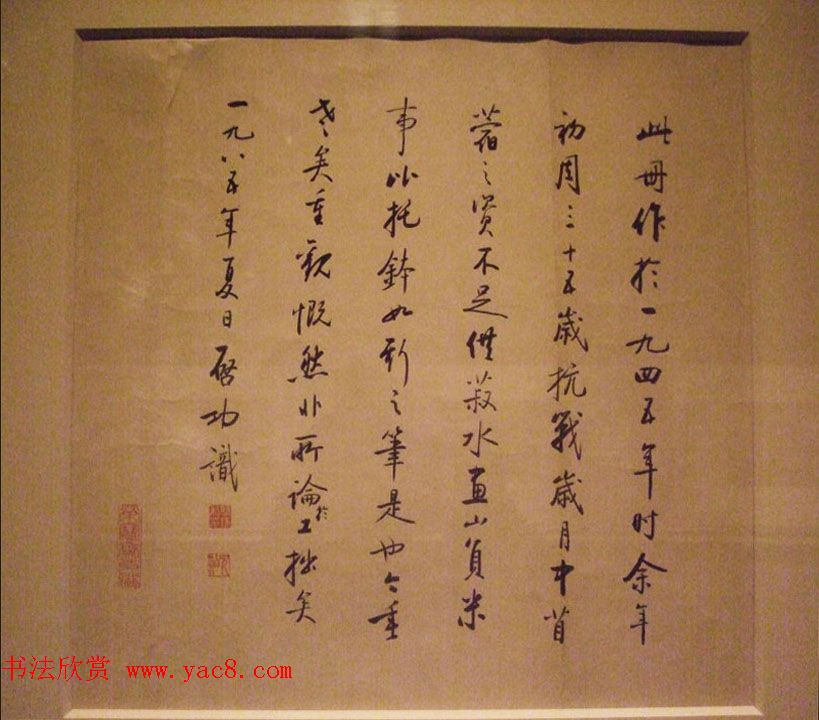 此册作於一九四五年时余年
初周三十五歲抗戰歲月中苜
蓿之資不足供菽水畫山負米
事比托鉢如斯之筆是也今重
老矣重觀慨然非所論於工拙矣
一九八五年夏日啓功識
书法欣赏 www.yac8.com